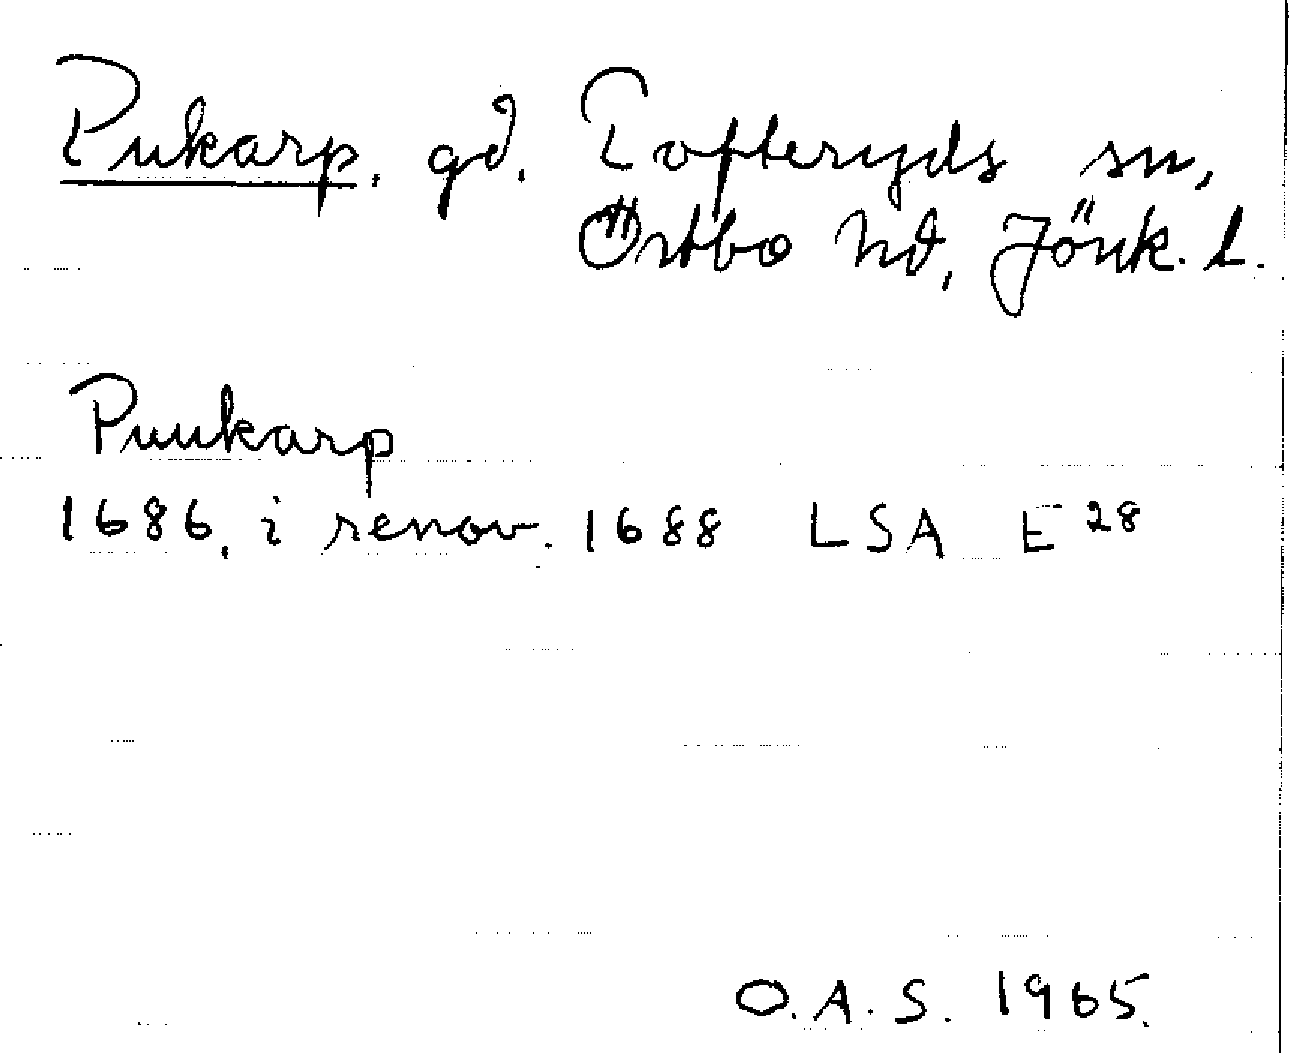 Pukarp, gd. Tofteryds sn,
Östbo hd, Jönk. l.
Puukarp
1686, i renov. 1688 LSA E 28
O.A.S. 1965.